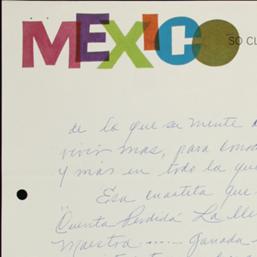 MEXICO
SO CL
de lo que su mente
vivir mas, para
y más en todo lo que
Esa cuartita que
"Cuenta Perdida" La lle
Maestra ..... Ganada -